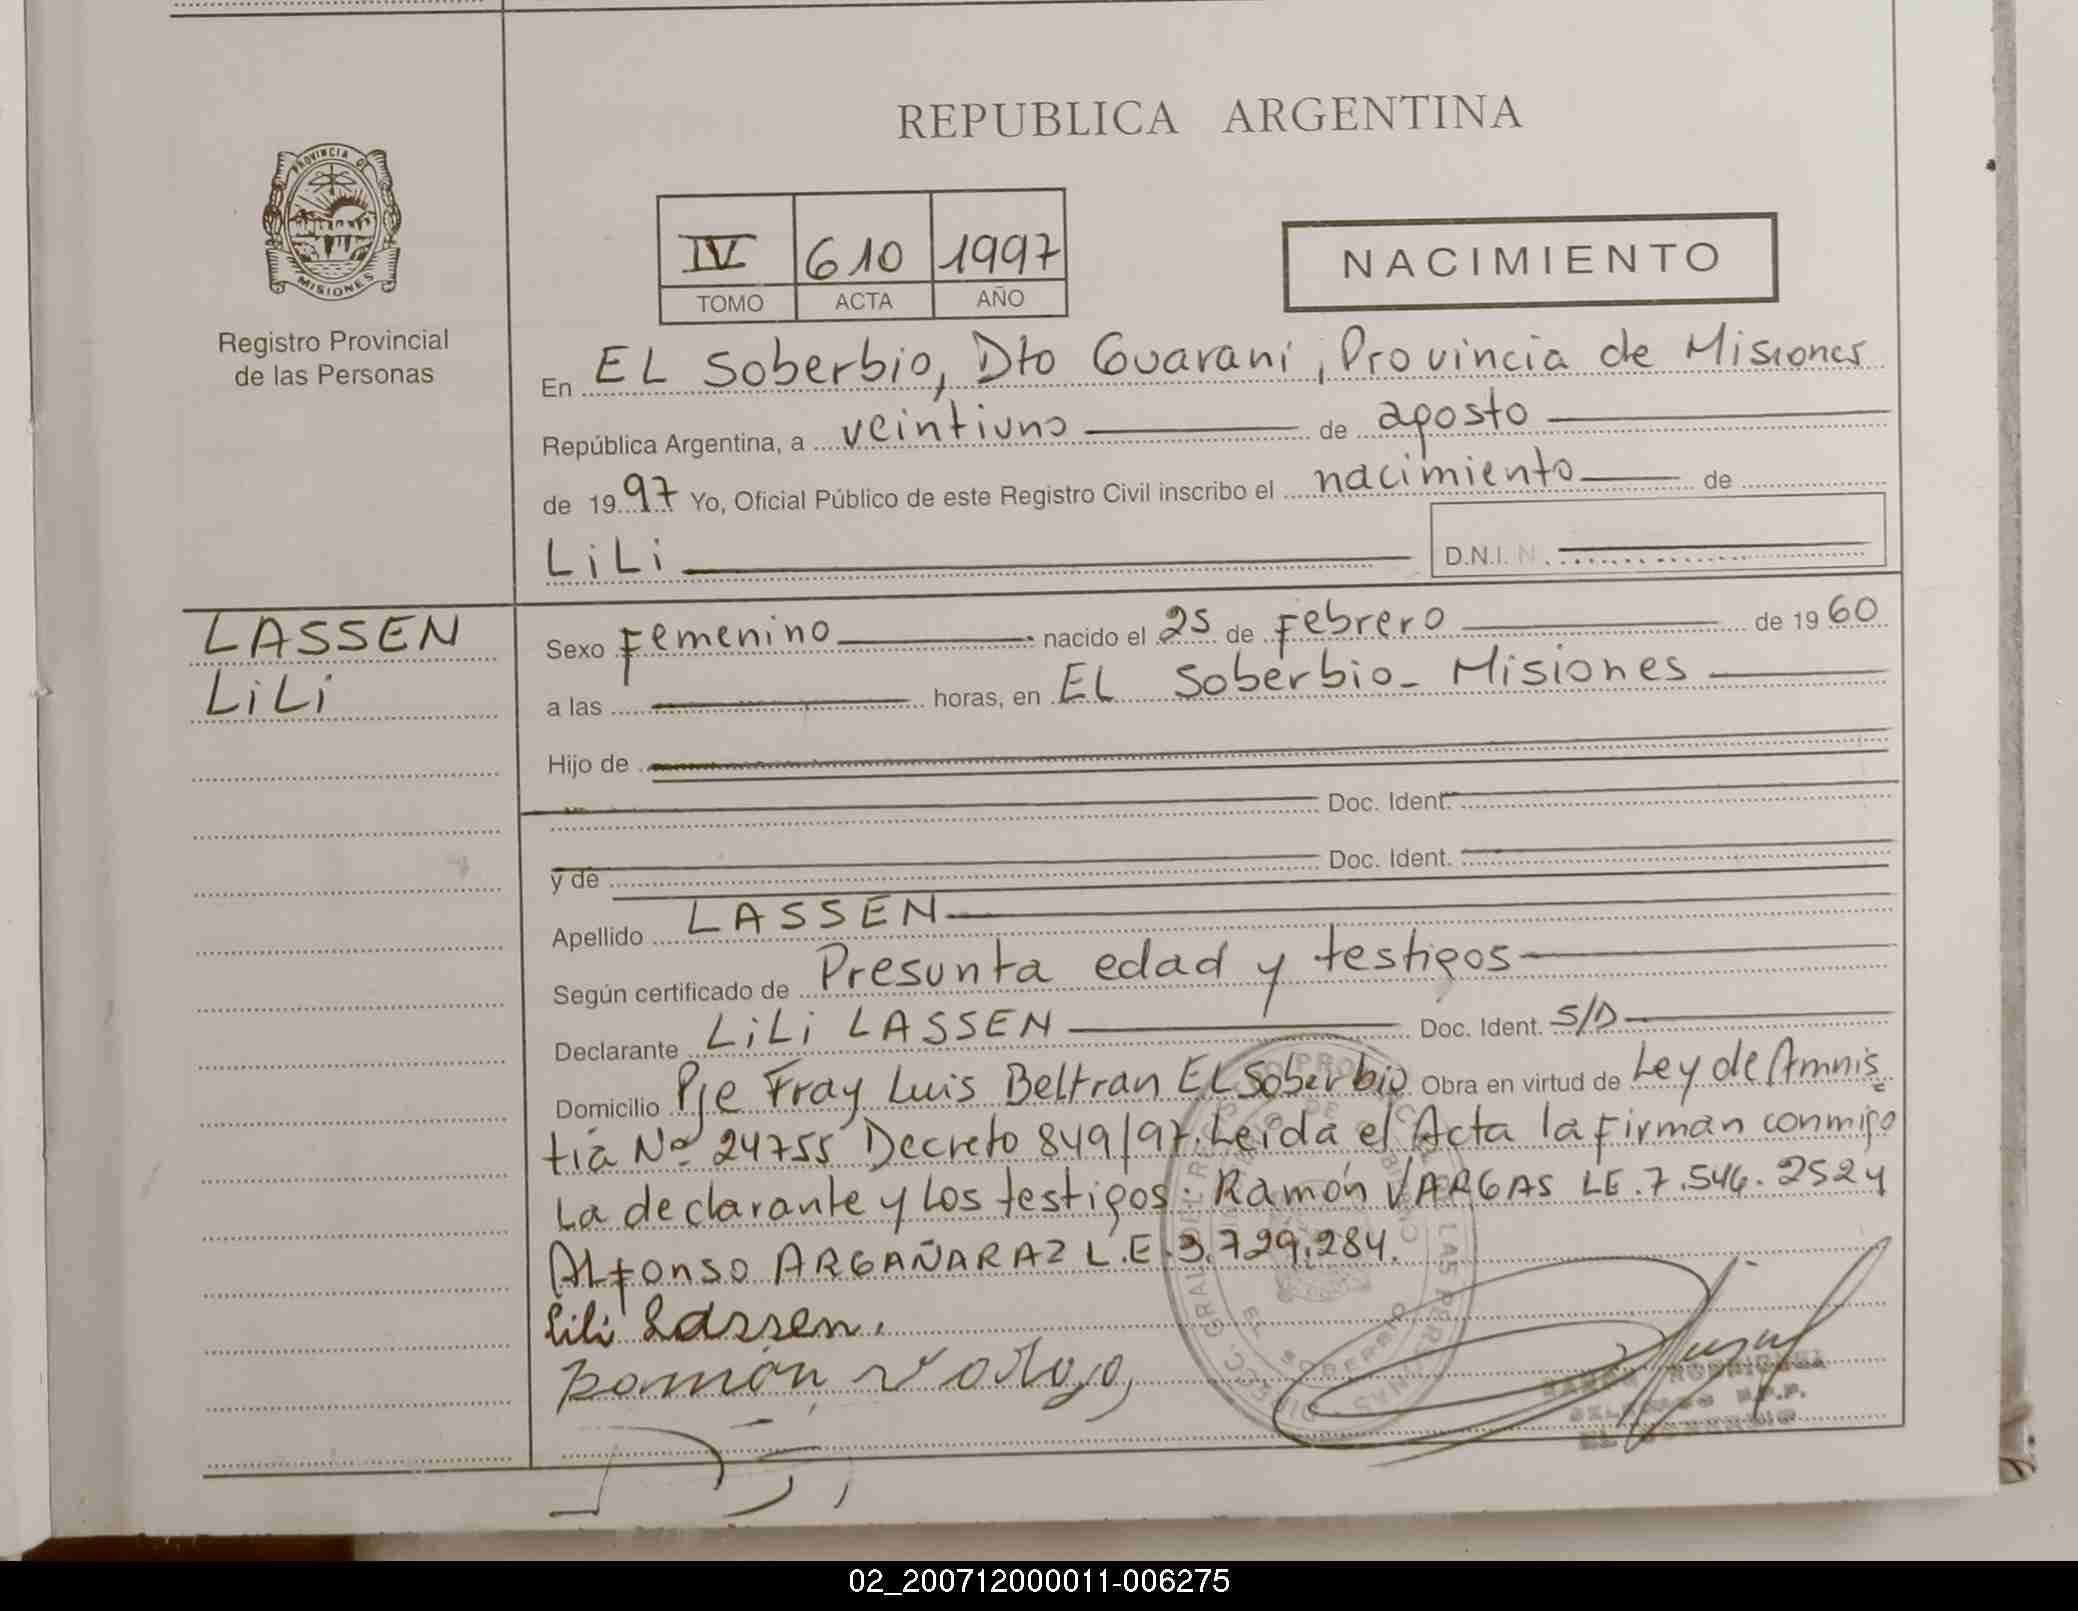 REPUBLICA ARGENTINA
PROVINCIA DE
MISIONES
Registro Provincial
de las Personas
IV 610 1997
TOMO ACTA AÑO
NACIMIENTO
En EL Soberbio, Dto Guaraní, Provincia de Misiones
República Argentina, a veintiuno de agosto
de 1997 Yo, Oficial Público de este Registro Civil inscribo el nacimiento de
LiLi D.N.I. N.
LASSEN
LiLi
Sexo Femenino nacido el 25 de Febrero de 1960
a las horas, en EL Soberbio - Misiones
Hijo de
Doc. Ident.
y de Doc. Ident.
Apellido LASSEN
Según certificado de Presunta edad y testigos
Declarante LiLi LASSEN Doc. Ident. S/D
Domicilio Pje Fray Luis Beltran EL Soberbio Obra en virtud de Ley de Amnis
tia Nº 24755 Decreto 849/97. Leída el Acta la firman conmigo
La declarante y Los testigos: Ramón VARGAS LE.7.546.252 y
Alfonso ARGAÑARAZ L.E.3.729.284.
Lili Lassen.
Ramón
EL SOBERBIO
EL SOBERBIO
02_200712000011-006275